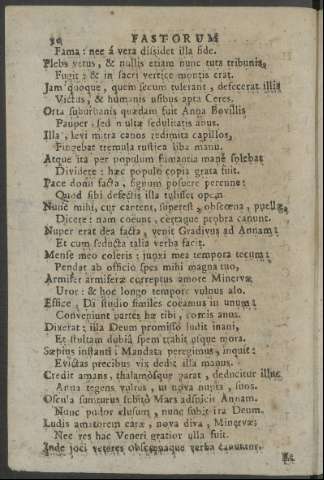 50 FASTORUM
Fama: nec á vera dissidet illa fide.
Plebs vetus, & nullis etiam nunc tuta tribunis,
Fugit: & in sacri vertice montis erat.
Jam quoque, quem secum tulerant, defecerat illis
Victus, & humanis usibus apta Ceres.
Orta suburbanis quædam fuit Anna Bovillis
Pauper, sed multæ sedulitatis anus.
Illa, levi mitra canos redimita capillos,
Fingebat tremula rustica liba manu.
Atque ita per populum fumantia mane solebat
Dividere: hæc populo copia grata fuit.
Pace domi facta, signum posuere perenne:
Quod sibi defectis illa tulisset opem
Nunc mihi, cur cantent, superest, obscœna, puellæ,
Dicere: nam coeunt, certaque probra canunt.
Nuper erat dea facta, venit Gradivus ad Annam;
Et cum seducta talia verba facit.
Mense meo coleris: junxi mea tempora tecum:
Pendet ab officio spes mihi magna tuo,
Armifer armiferæ correptus amore Minervæ
Uror: & hoc longo tempore vulnus alo.
Effice, Di studio similes coeamus in unum;
Conveniunt partes hæ tibi, comis anus.
Dixerat; illa Deum promisso ludit inani,
Et stultam dubia spem trahit usque mora.
Sæpius instanti; Mandata peregimus, inquit:
Evictas precibus vix dedit illa manus.
Credit amans, thalamosque parat, deducitur illuc
Anna tegens vultus, ut nova nupta, suos.
Oscula sumturus subito Mars adspicit Annam.
Nunc pudor elusum, nunc subit ira Deum.
Ludis amatorem caræ, nova diva, Minervæ;
Nec res hac Veneri gratior ulla fuit.
Inde joci veteres obscœnaque verba canuntur,